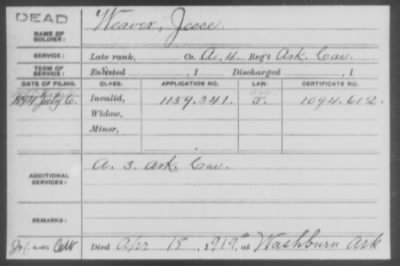 DEAD
NAME OF SOLDIER: Weaver, Jesse
SERVICE: Late rank, Co. A, 4, Reg't Ark. Cav.
TERM OF SERVICE: Enlisted , 1 Discharged , 1
DATE OF FILING. CLASS. APPLICATION NO. LAW. CERTIFICATE NO.
1894 July 6. Invalid, 1159.341. 1094.612.
Widow,
Minor,
ADDITIONAL SERVICES: A. 3. Ark. Cav.
REMARKS:
Died Apr 18, 1919, at Washburn Ark